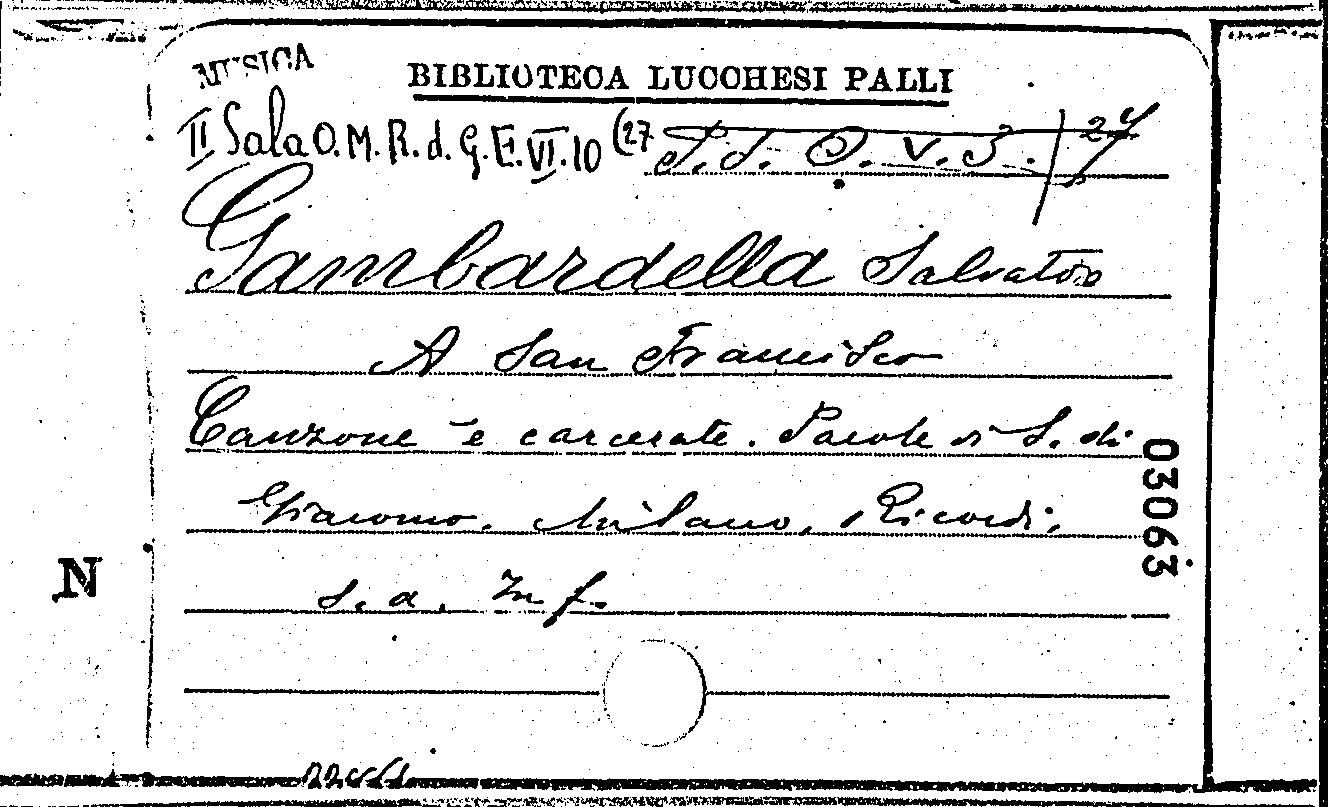 MUSICA
BIBLIOTECA LUCCHESI PALLI
II Sala O. M. R. d. G. E. VI. 10 (27
Gambardella Salvatore
A San Francisco
Canzone 'e carcerate. Parole di S. di
Giacomo. Milano, Ricordi,
s. a. In f.
03063
N